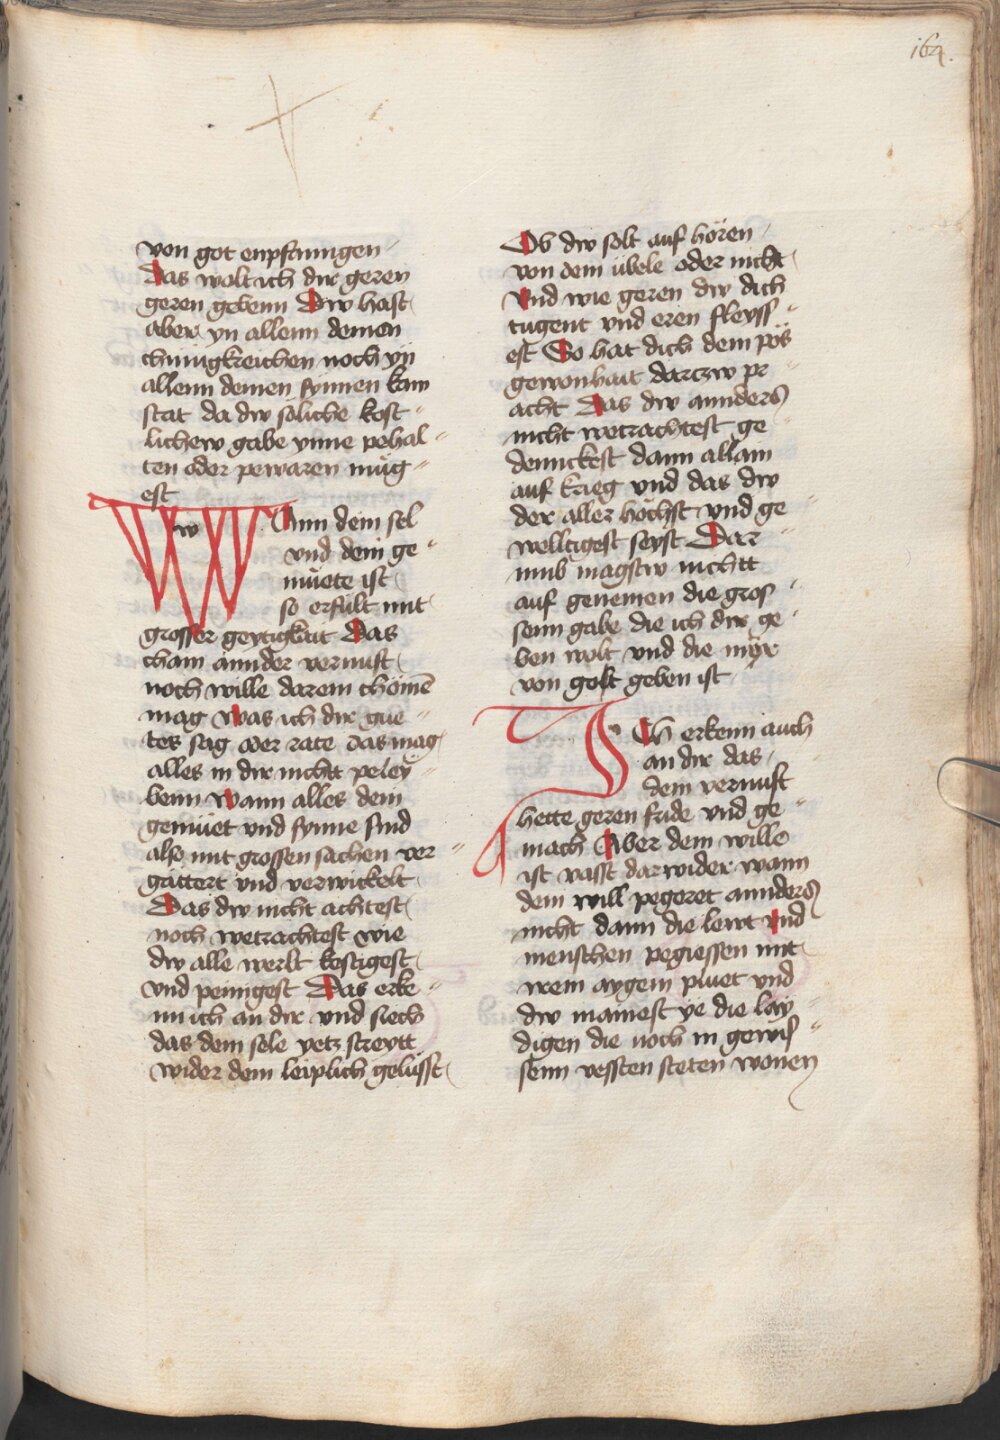 164.
von got enpfanngen
Das wolt ich dir geren
geren gebenn Dw hast
aber yn allenn deinen
chunigkreichen noch yn
allenn deinen synnen kain
stat da dw soliche kost„
lichew gabe ynne pehal„
ten oder pewaren müg„
est
w
WAnn dein sel
vnd dein ge„
müete ist
so erfült mit
grosser geytigkait Das
chain annder vernuft
noch wille darein chömē
mag Was ich dir gue„
tes sag oder rate das mag
alles in dir nichtt peley„
benn Wann alles dein
gemüet vnd synne sind
also mit grossen sachen ver„
gattert vnd verwickelt
Das dw nicht achtest
noch wetrachtest wie
dw alle werlt kestigest
vnd peinigest Das erke„
nn ich an dir vnd siech
das dein sele yetz streytt
wider dein leiplich gelüsst
Ob dw solt auf hören
von dem übele oder nicht
Vnd wie geren dw dich
tugent vnd eren fleyss„
est So hat dich dein pös
gewonhait darczw pr„
acht Das dw annders
nicht wetrachtest ge„
dennckest dann allain
auf krieg vnd das dw
der aller höchst vnd ge„
welltigest seyst Dar„
umb magstw nichtt
auf genemen die gros„
senn gabe die ich dir ge„
ben wolt vnd die mir
von golt geben ist
ICh erkenn auch
an dir das
dein vernuft
hette geren fride vnd ge„
mach Aber dein wille
ist vasst darwider wann
dein will pegeret annders
nicht dann die lewt vnd
menschen pegiessen mit
irem aygem pluet vnd
dw mainest ye die lay„
digen die noch in gewis„
senn vessten steten wonen